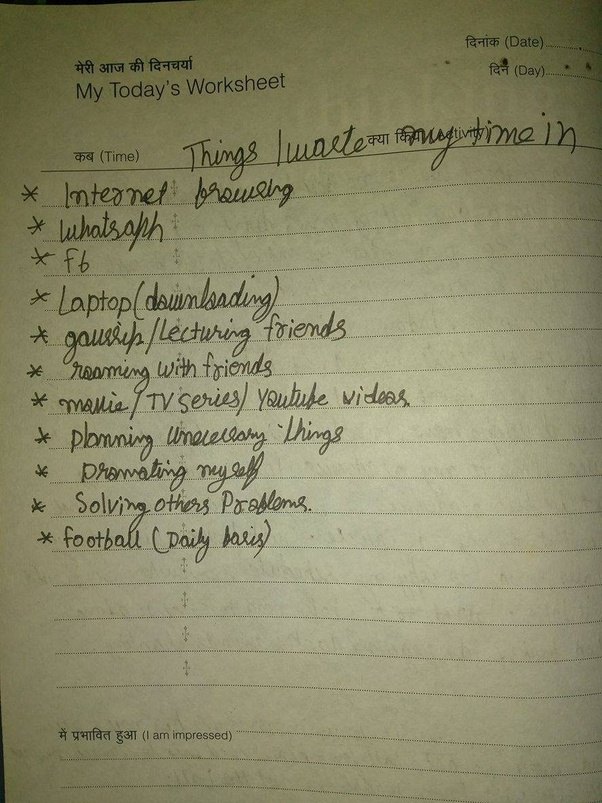 मेरी आज की दिनचर्या
My Today's Worksheet
दिनांक (Date)
दिन (Day)
कब (Time) क्या किया (Activity)
Things I waste my time in
* Internet browsing
* Whatsaph
* Fb
* Laptop (downloading)
* gaussip/Lecturing friends
* roaming with friends
* movie/TV series/Youtube videos.
* planning unecessary things
* promoting myself
* Solving others Problems.
* football (Daily basis)
में प्रभावित हुआ (I am impressed)